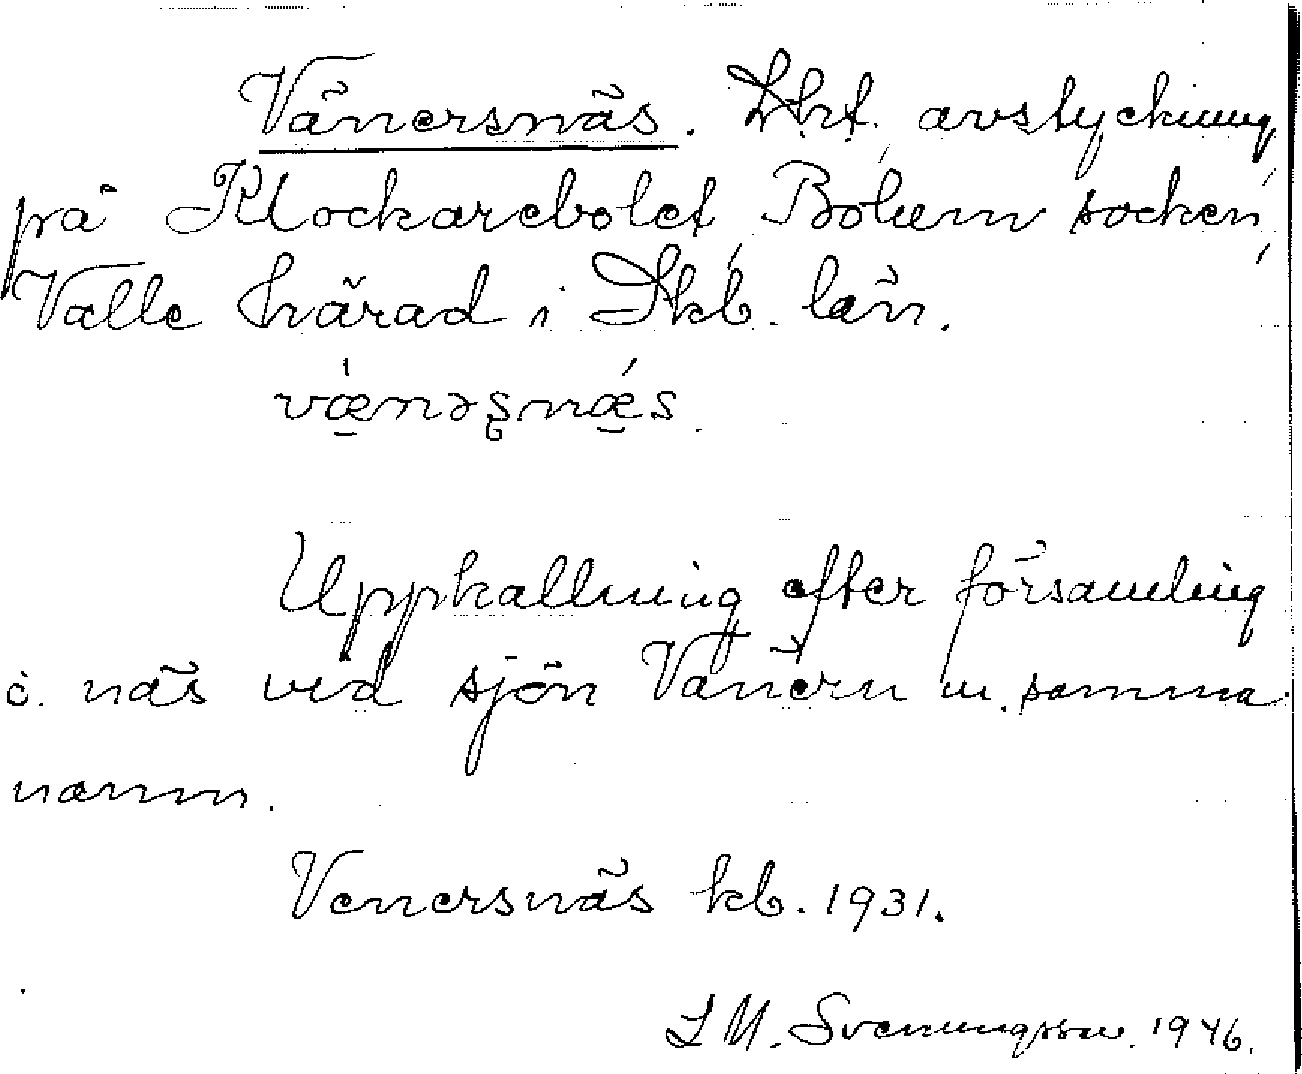 Vänersnäs. Lht. avstyckning
på Klockarebolet, Bolum socken,
Valle härad i Skb. län.
væ̀nəʂnǽs.
Uppkallning efter församling
o. näs ved sjön Vänern m. samma
namn.
Venersnäs kb. 1931.
L M. Svenungsson. 1946.